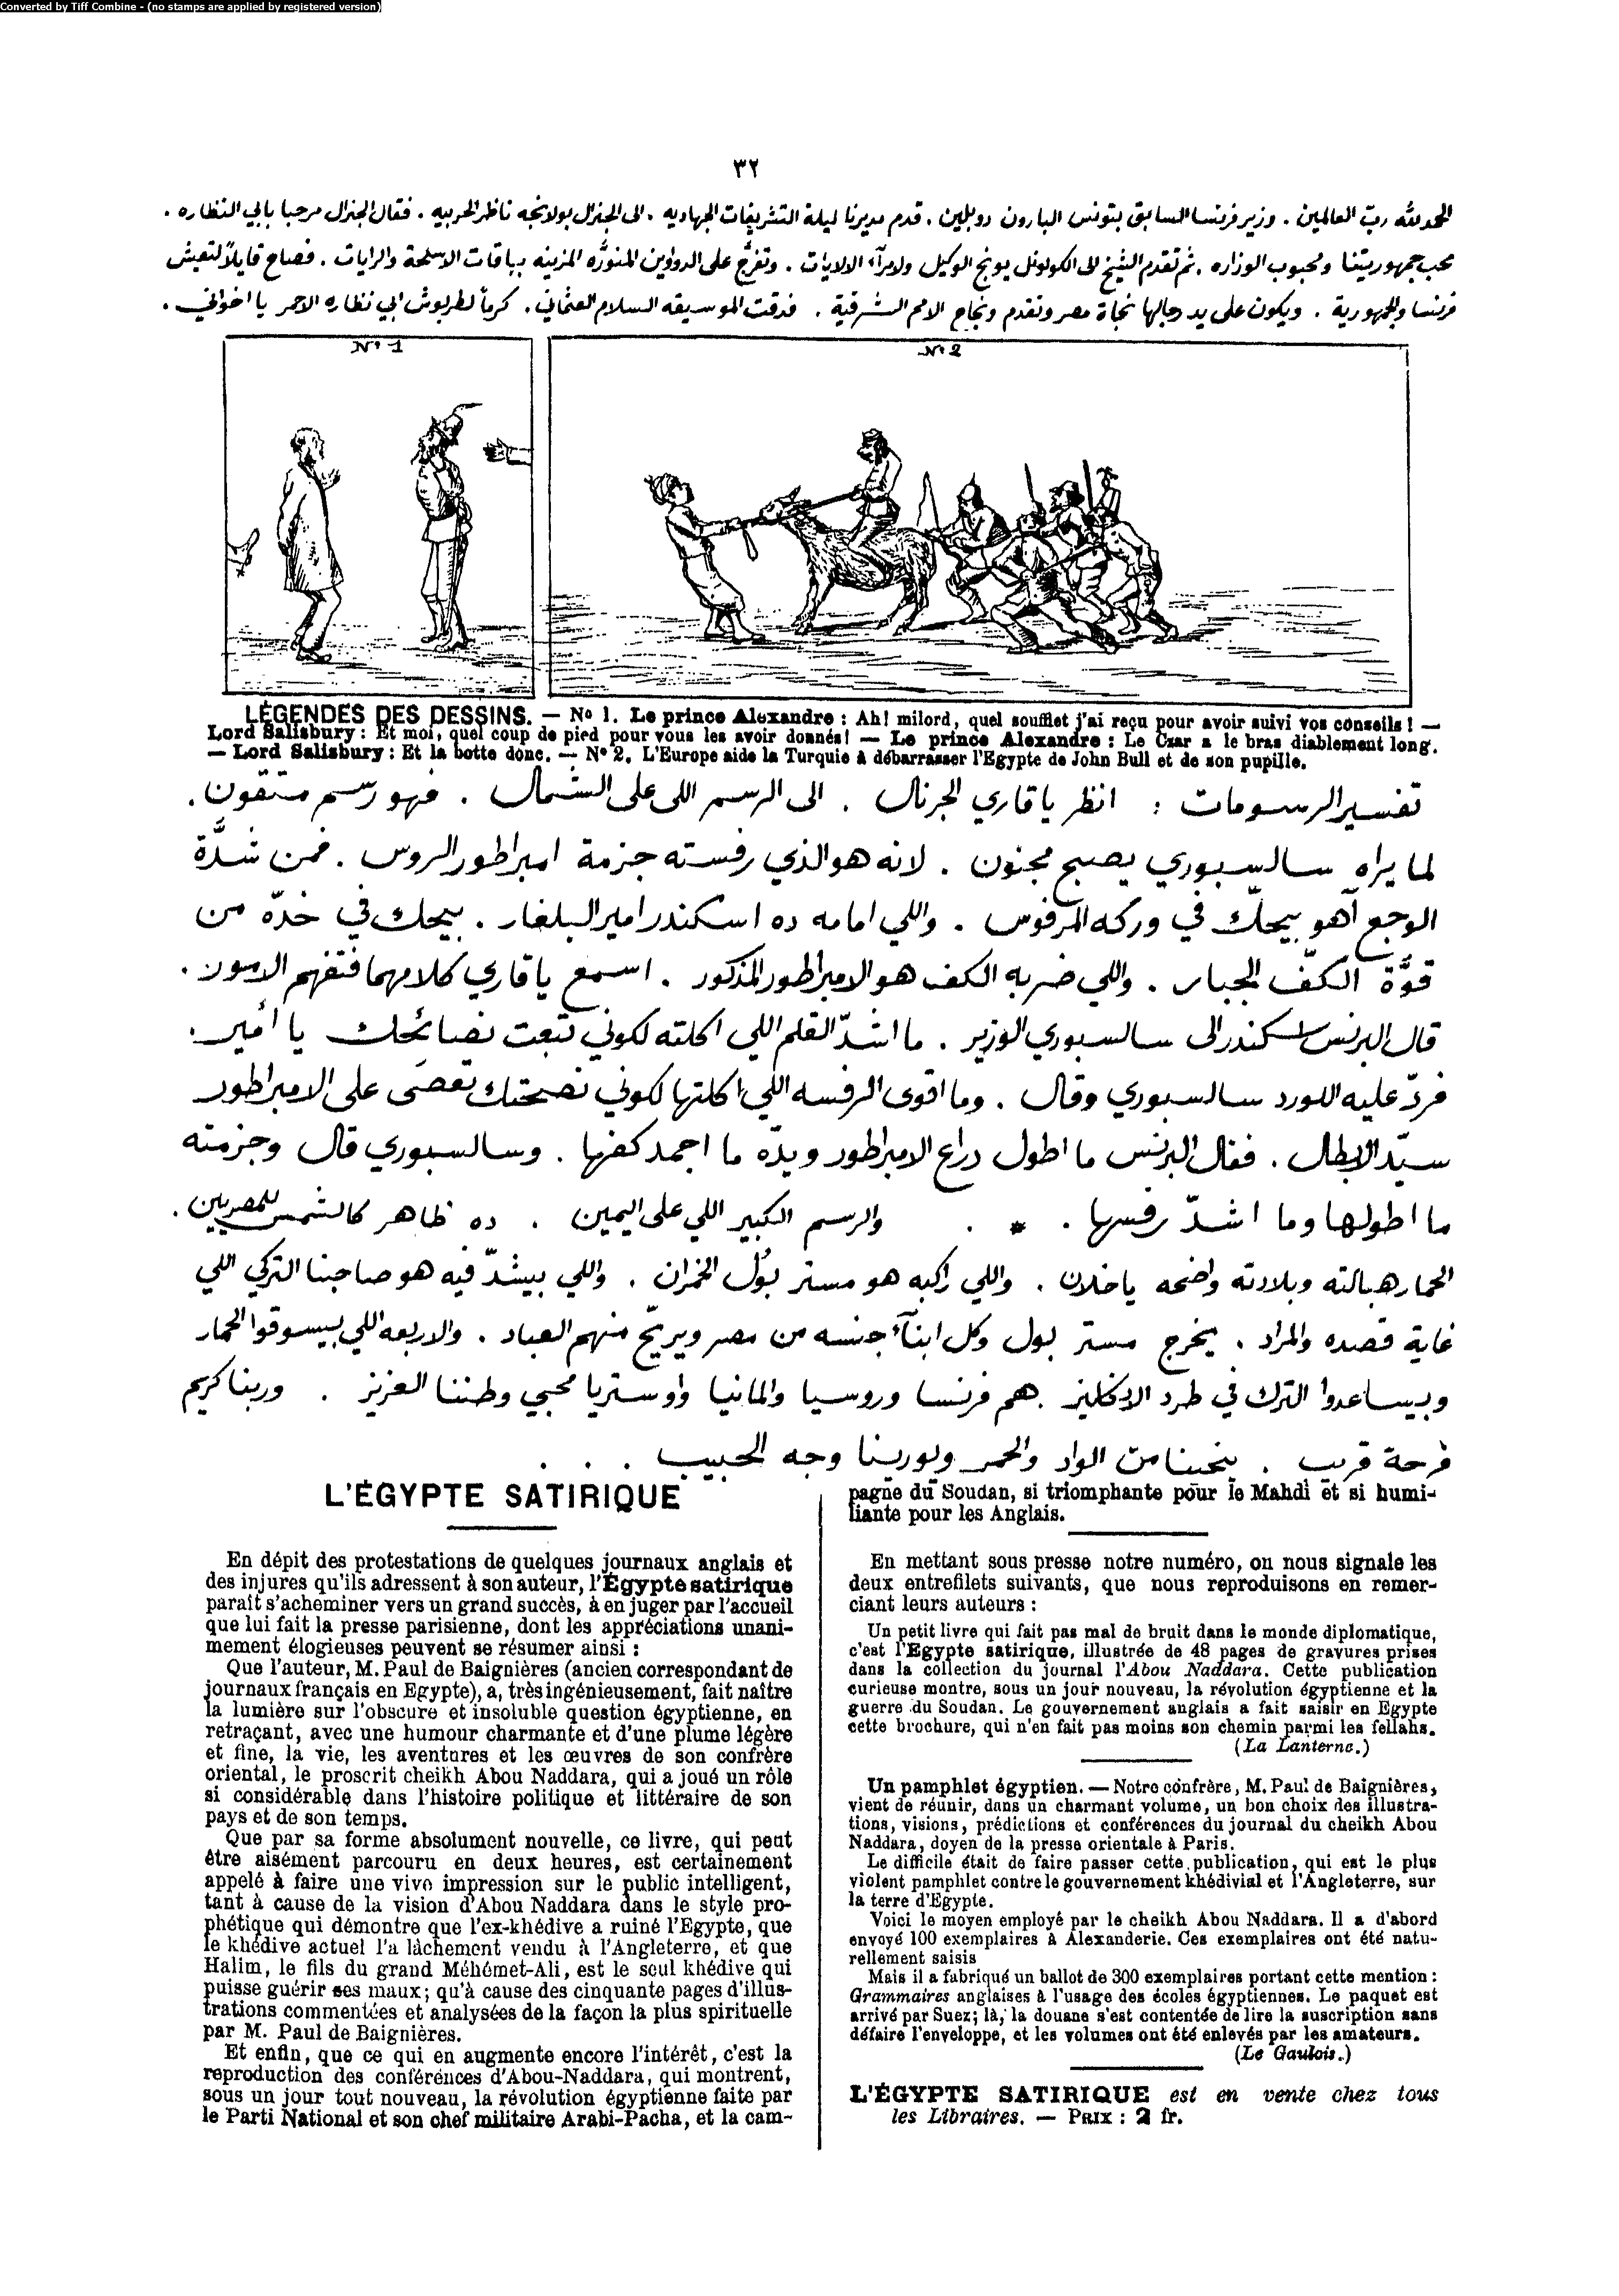 Converted by Tiff Combine - (no stamps are applied by registered version)
٣٢
الحمد لله ربّ العالمين . وزير فرنسا السابق بتونس البارون دوبلين . قدم مديرنا ليلة التشريفات الجهاديه . الى الجنرال بولانجه ناظر الحربيه . فقال الجنرال مرحبا بابي النظاره .
محب جمهوريتنا ومحبوب الوزاره . ثم تقدم الشيخ الى الكولونل يونج الوكيل ولامرآء الالايات . وتفرّج على الدواوين المنوّره المزينه بباقات الاسلحة والرايات . فصاح قايلاً لتعيش
فرنسا والجمهورية . ويكون على يد رجالها نجاة مصر وتقدم ونجاح الامم الشرقية . فدقت الموسيقه السلام العثماني . كرماً لطربوش ابي نظاره الاحمر يا اخواني .
Nº 1
Nº 2
LÉGENDES DES DESSINS. — Nº 1. Le prince Alexandre : Ah! milord, quel soufflet j'ai reçu pour avoir suivi vos conseils ! —
Lord Salisbury : Et moi, quel coup de pied pour vous les avoir donnés! — Le prince Alexandre : Le Czar a le bras diablement long.
— Lord Salisbury : Et la botte donc. — Nº 2. L'Europe aide la Turquie à débarrasser l'Egypte de John Bull et de son pupille.
تفسير الرسومات : انظر يا قاري الجرنال . الى الرسم اللى على الشمال . فهو رسم متقون .
لما يراه سالسبوري يصبح مجنون . لانه هو الذي رفسته جزمة امبراطور الروس . فمن شدَّة
الوجع آهو بيحكّ في وركه المرفوس . واللي امامه ده اسكندر امير البلغار . بيحك في خدّه من
قوَّة الكفّ الجبار . واللي ضربه الكف هو الامبراطور المذكور . اسمع يا قاري كلامهما فتفهم الامور .
قال البرنس اسكندر الى سالسبوري الوزير . ما اشدّ القلم اللي اكلته لكوني تبعت نصائحك يا أمير .
فردّ عليه اللورد سالسبوري وقال . وما اقوى الرفسه اللي اكلتها لكوني نصحتك تعصى على الامبراطور
سيّد الابطال . فقال البرنس ما اطول دراع الامبراطور ويدّه ما اجمد كفها . وسالسبوري قال وجزمته
ما اطولها وما اشدّ رفسها . * . والرسم الكبير اللي على اليمين . ده ظاهر كالشمس للمصريين .
الحمار هبالته وبلادته واضحه يا خلان . واللي راكبه هو مستر بُول الخمران . واللي بيشدّ فيه هو صاحبنا التركي اللي
غاية قصده والمراد . يخرج مستر بول وكل ابنآء جنسه من مصر ويريّح منهم العباد . والاربعه اللي بيسوقوا الحمار
وبيساعدوا الترك في طرد الانكليز . هم فرنسا وروسيا والمانيا واوستريا محبي وطننا العزيز . وربنا كريم
فرحة قريب . ينجينا من الواد والحمر ويورينا وجه الحبيب . . .
L'ÉGYPTE SATIRIQUE
En dépit des protestations de quelques journaux anglais et
des injures qu'ils adressent à son auteur, l'Égypte satirique
paraît s'acheminer vers un grand succès, à en juger par l'accueil
que lui fait la presse parisienne, dont les appréciations unani-
mement élogieuses peuvent se résumer ainsi :
Que l'auteur, M. Paul de Baignières (ancien correspondant de
journaux français en Egypte), a, très ingénieusement, fait naître
la lumière sur l'obscure et insoluble question égyptienne, en
retraçant, avec une humour charmante et d'une plume légère
et fine, la vie, les aventures et les œuvres de son confrère
oriental, le proscrit cheikh Abou Naddara, qui a joué un rôle
si considérable dans l'histoire politique et littéraire de son
pays et de son temps.
Que par sa forme absolument nouvelle, ce livre, qui peut
être aisément parcouru en deux heures, est certainement
appelé à faire une vive impression sur le public intelligent,
tant à cause de la vision d'Abou Naddara dans le style pro-
phétique qui démontre que l'ex-khédive a ruiné l'Egypte, que
le khédive actuel l'a lâchement vendu à l'Angleterre, et que
Halim, le fils du grand Méhémet-Ali, est le seul khédive qui
puisse guérir ses maux; qu'à cause des cinquante pages d'illus-
trations commentées et analysées de la façon la plus spirituelle
par M. Paul de Baignières.
Et enfin, que ce qui en augmente encore l'intérêt, c'est la
reproduction des conférences d'Abou-Naddara, qui montrent,
sous un jour tout nouveau, la révolution égyptienne faite par
le Parti National et son chef militaire Arabi-Pacha, et la cam-
pagne du Soudan, si triomphante pour le Mahdi et si humi-
liante pour les Anglais.
En mettant sous presse notre numéro, on nous signale les
deux entrefilets suivants, que nous reproduisons en remer-
ciant leurs auteurs :
Un petit livre qui fait pas mal de bruit dans le monde diplomatique,
c'est l'Egypte satirique, illustrée de 48 pages de gravures prises
dans la collection du journal l'Abou Naddara. Cette publication
curieuse montre, sous un jour nouveau, la révolution égyptienne et la
guerre du Soudan. Le gouvernement anglais a fait saisir en Egypte
cette brochure, qui n'en fait pas moins son chemin parmi les fellahs.
(La Lanterne.)
Un pamphlet égyptien. — Notre confrère, M. Paul de Baignières,
vient de réunir, dans un charmant volume, un bon choix des illustra-
tions, visions, prédictions et conférences du journal du cheikh Abou
Naddara, doyen de la presse orientale à Paris.
Le difficile était de faire passer cette publication, qui est le plus
violent pamphlet contre le gouvernement khédivial et l'Angleterre, sur
la terre d'Egypte.
Voici le moyen employé par le cheikh Abou Naddara. Il a d'abord
envoyé 100 exemplaires à Alexanderie. Ces exemplaires ont été natu-
rellement saisis
Mais il a fabriqué un ballot de 300 exemplaires portant cette mention :
Grammaires anglaises à l'usage des écoles égyptiennes. Le paquet est
arrivé par Suez; là, la douane s'est contentée de lire la suscription sans
défaire l'enveloppe, et les volumes ont été enlevés par les amateurs.
(Le Gaulois.)
L'ÉGYPTE SATIRIQUE est en vente chez tous
les Libraires. — PRIX : 2 fr.